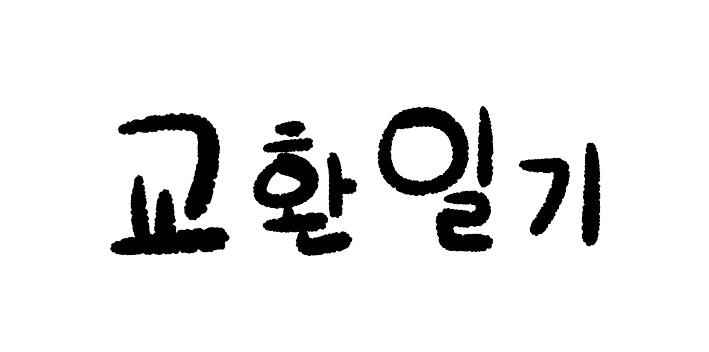 교환일기